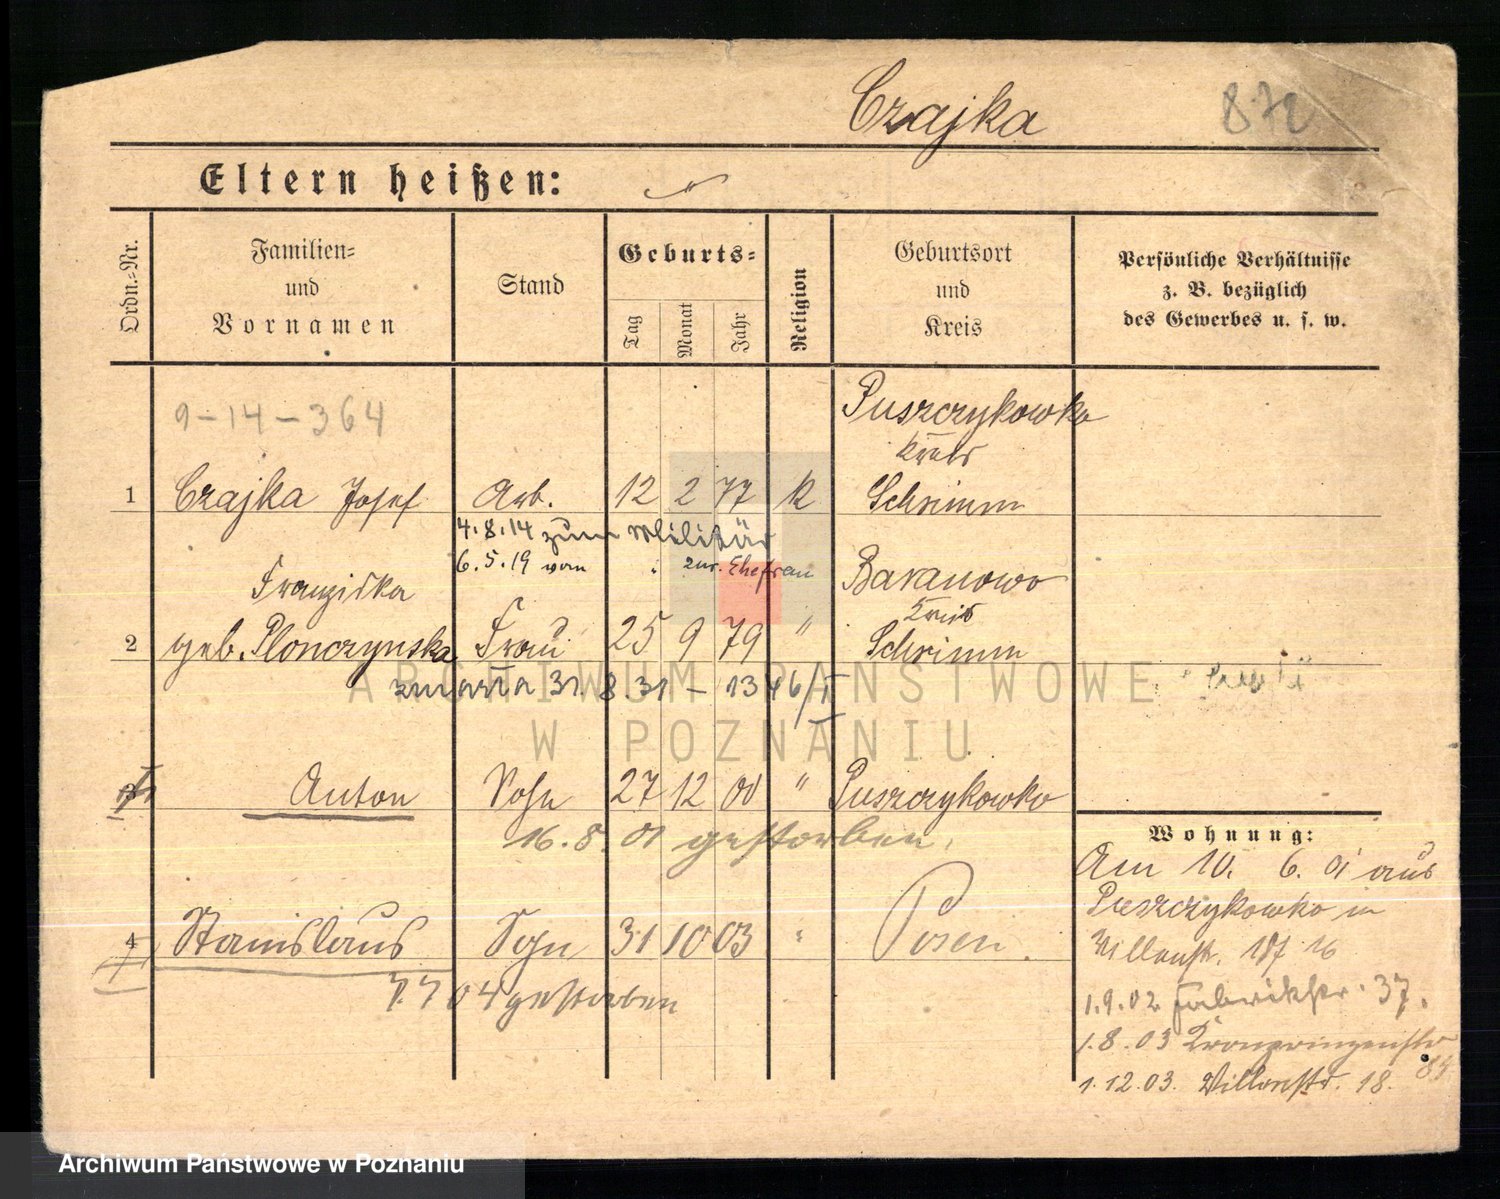 Czajka 872
Eltern heißen:
Ordn.-Nr.
Familien-
und
Vornamen
Stand
Geburts-
Tag
Monat
Jahr
Religion
Geburtsort
und
Kreis
Persönliche Verhältnisse
z. B. bezüglich
des Gewerbes u. s. w.
9-14-364
Puszczykowko
Kreis
1 Czajka Josef Arb. 12 2 77 K Schrimm
4.8.14 zum Militär
6.5.19 vom " zur Ehefrau
Franziska Baranowo
Kreis
2 geb. Plonczynska Frau 25 9 79 " Schrimm
zmarła 31.8.31 - 1346/II
Anton Sohn 27 12 00 " Puszczykowko
16.8.01 gestorben.
4 Stanislaus Sohn 31 10 03 " Posen.
7.7 04 gestorben
Wohnung:
Am 10. 6. 01 aus
Puszczykowko in
Villenstr. 16
1.9.02 Fabrikstr. 37.
1.8.03 Kronprinzenstr
84
1.12.03. Villenstr. 18.
ARCHIWUM PAŃSTWOWE
W POZNANIU
Archiwum Państwowe w Poznaniu